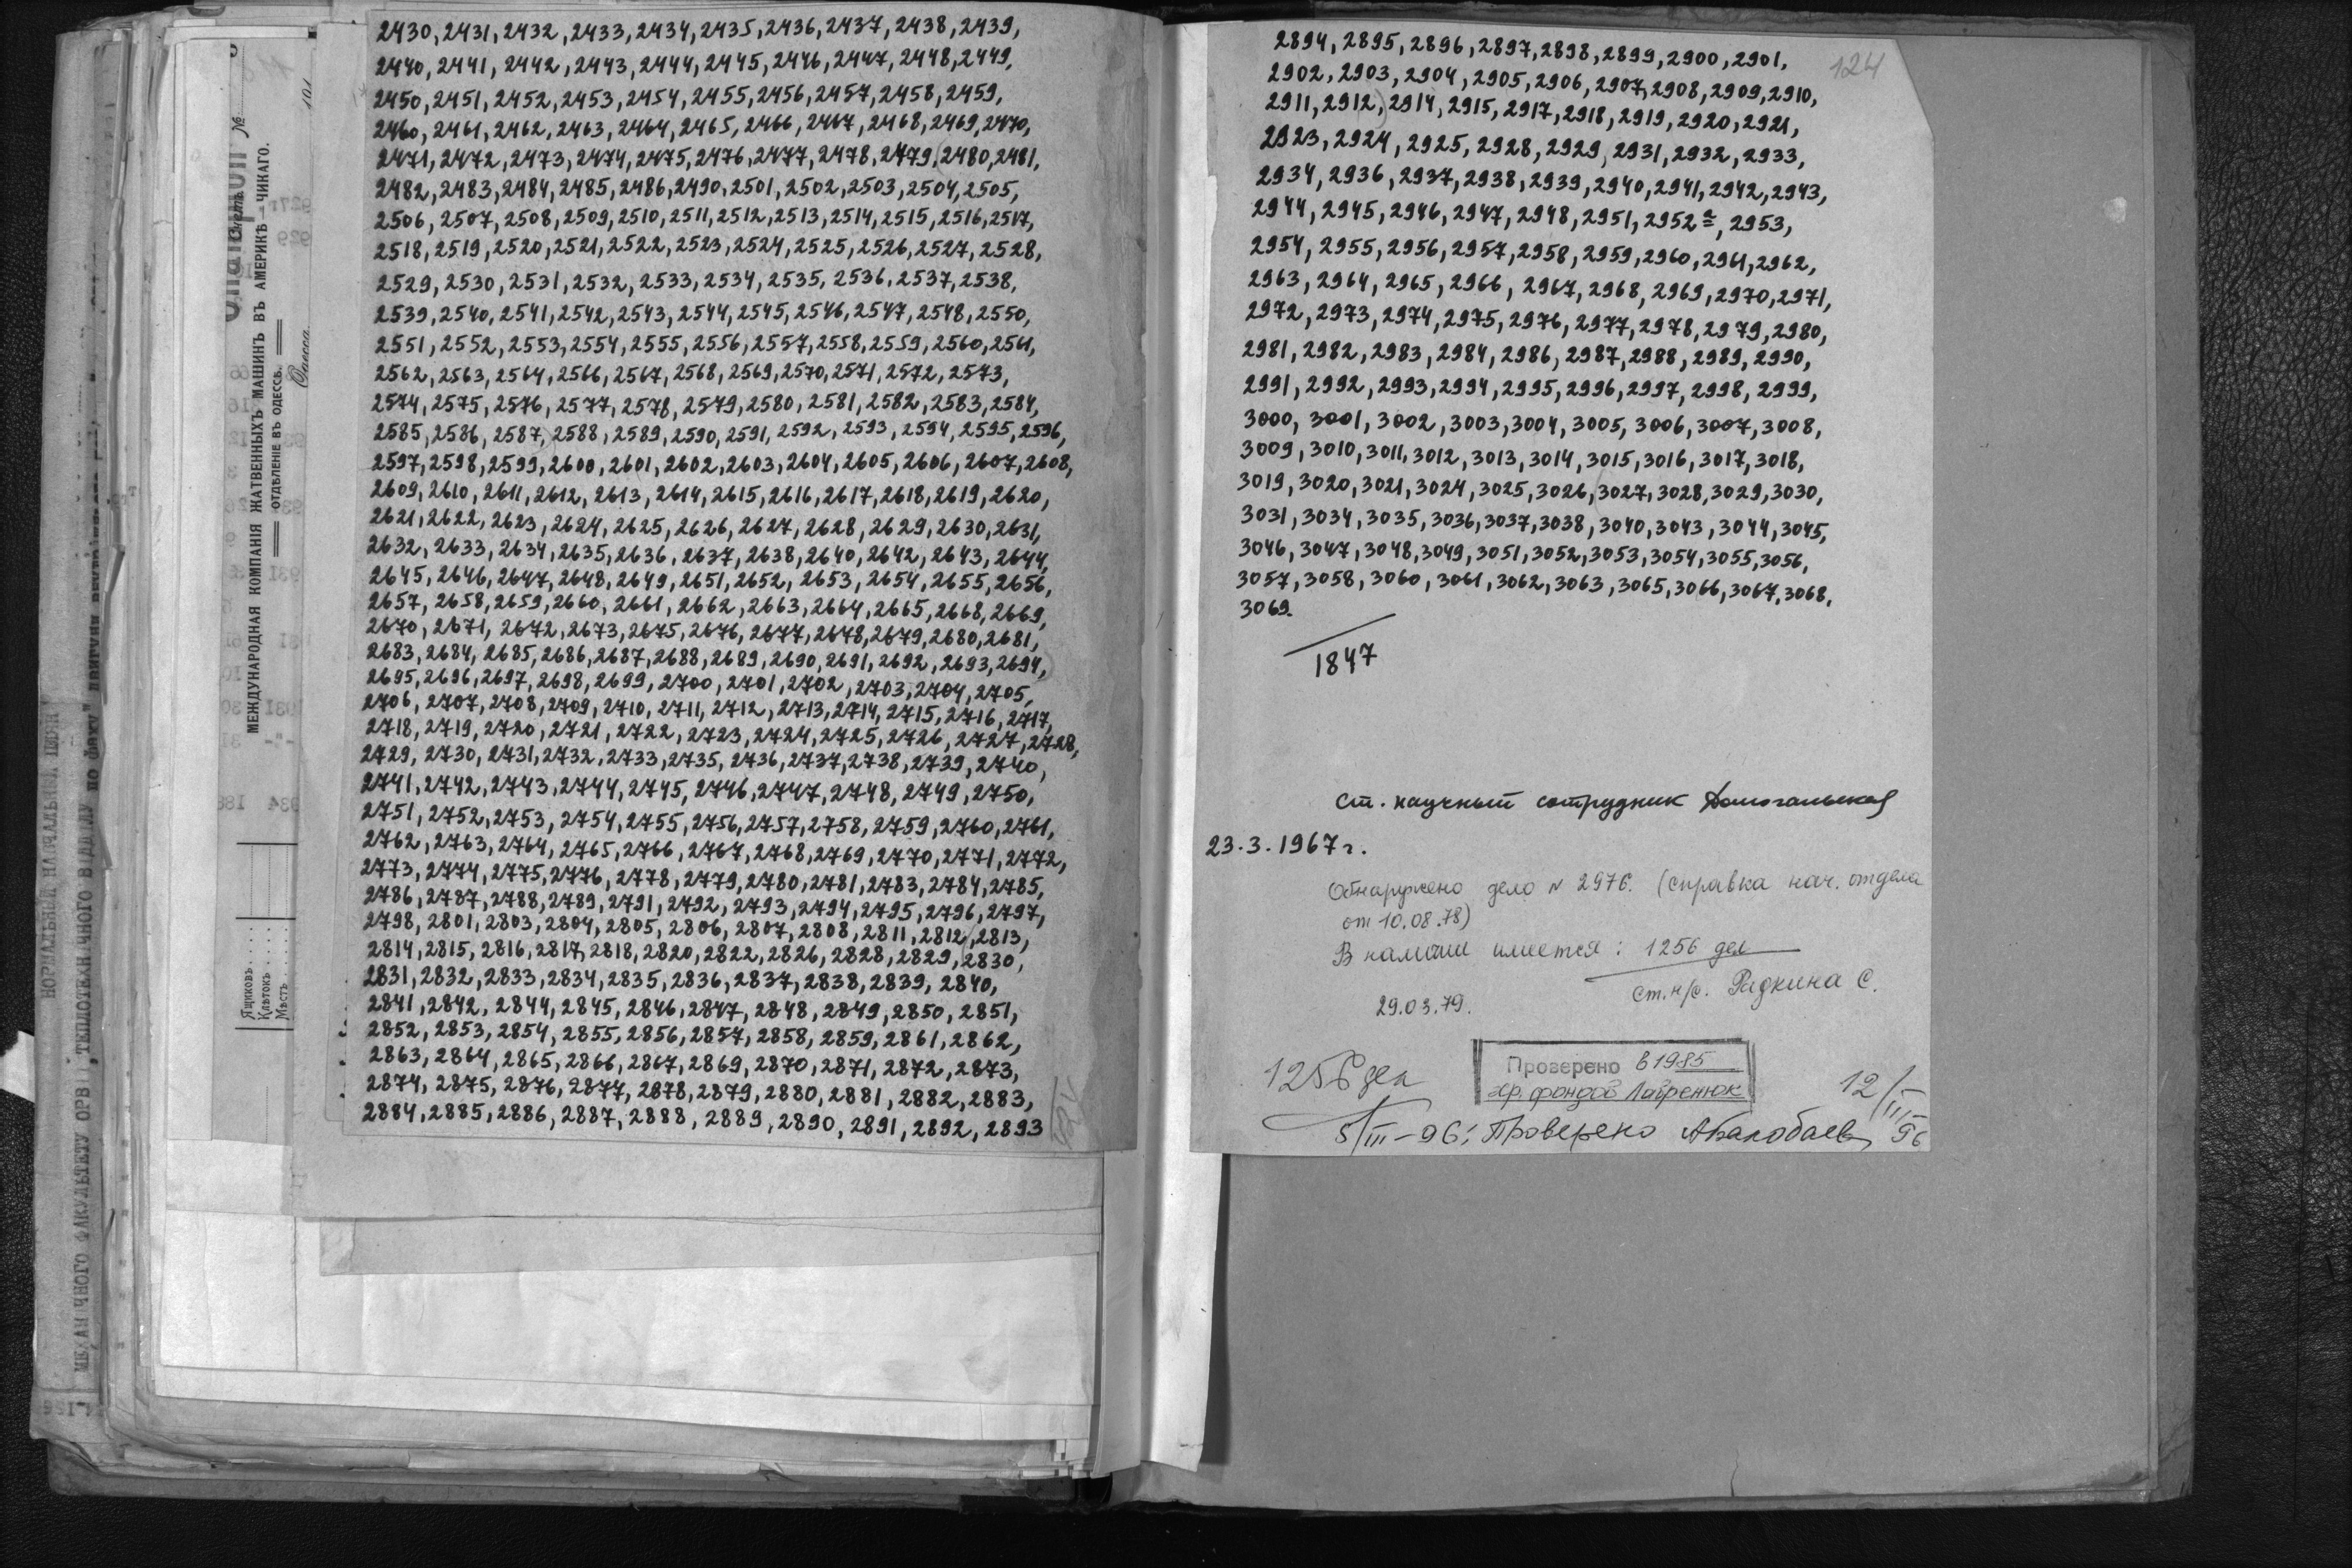 2430, 2431, 2432, 2433, 2434, 2435, 2436, 2437, 2438, 2439,
2440, 2441, 2442, 2443, 2444, 2445, 2446, 2447, 2448, 2449,
2450, 2451, 2452, 2453, 2454, 2455, 2456, 2457, 2458, 2459,
2460, 2461, 2462, 2463, 2464, 2465, 2466, 2467, 2468, 2469, 2470,
2471, 2472, 2473, 2474, 2475, 2476, 2477, 2478, 2479, 2480, 2481,
2482, 2483, 2484, 2485, 2486, 2490, 2501, 2502, 2503, 2504, 2505,
2506, 2507, 2508, 2509, 2510, 2511, 2512, 2513, 2514, 2515, 2516, 2517,
2518, 2519, 2520, 2521, 2522, 2523, 2524, 2525, 2526, 2527, 2528,
2529, 2530, 2531, 2532, 2533, 2534, 2535, 2536, 2537, 2538,
2539, 2540, 2541, 2542, 2543, 2544, 2545, 2546, 2547, 2548, 2550,
2551, 2552, 2553, 2554, 2555, 2556, 2557, 2558, 2559, 2560, 2561,
2562, 2563, 2564, 2566, 2567, 2568, 2569, 2570, 2571, 2572, 2573,
2574, 2575, 2576, 2577, 2578, 2579, 2580, 2581, 2582, 2583, 2584,
2585, 2586, 2587, 2588, 2589, 2590, 2591, 2592, 2593, 2594, 2595, 2596,
2597, 2598, 2599, 2600, 2601, 2602, 2603, 2604, 2605, 2606, 2607, 2608,
2609, 2610, 2611, 2612, 2613, 2614, 2615, 2616, 2617, 2618, 2619, 2620,
2621, 2622, 2623, 2624, 2625, 2626, 2627, 2628, 2629, 2630, 2631,
2632, 2633, 2634, 2635, 2636, 2637, 2638, 2640, 2642, 2643, 2644,
2645, 2646, 2647, 2648, 2649, 2651, 2652, 2653, 2654, 2655, 2656,
2657, 2658, 2659, 2660, 2661, 2662, 2663, 2664, 2665, 2668, 2669,
2670, 2671, 2672, 2673, 2675, 2676, 2677, 2678, 2679, 2680, 2681,
2683, 2684, 2685, 2686, 2687, 2688, 2689, 2690, 2691, 2692, 2693, 2694,
2695, 2696, 2697, 2698, 2699, 2700, 2701, 2702, 2703, 2704, 2705,
2706, 2707, 2708, 2709, 2710, 2711, 2712, 2713, 2714, 2715, 2716, 2717,
2718, 2719, 2720, 2721, 2722, 2723, 2724, 2725, 2726, 2727, 2728,
2729, 2730, 2731, 2732, 2733, 2735, 2736, 2737, 2738, 2739, 2740,
2741, 2742, 2743, 2744, 2745, 2746, 2747, 2748, 2749, 2750,
2751, 2752, 2753, 2754, 2755, 2756, 2757, 2758, 2759, 2760, 2761,
2762, 2763, 2764, 2765, 2766, 2767, 2768, 2769, 2770, 2771, 2772,
2773, 2774, 2775, 2776, 2778, 2779, 2780, 2781, 2783, 2784, 2785,
2786, 2787, 2788, 2789, 2791, 2792, 2793, 2794, 2795, 2796, 2797,
2798, 2801, 2803, 2804, 2805, 2806, 2807, 2808, 2811, 2812, 2813,
2814, 2815, 2816, 2817, 2818, 2820, 2822, 2826, 2828, 2829, 2830,
2831, 2832, 2833, 2834, 2835, 2836, 2837, 2838, 2839, 2840,
2841, 2842, 2844, 2845, 2846, 2847, 2848, 2849, 2850, 2851,
2852, 2853, 2854, 2855, 2856, 2857, 2858, 2859, 2861, 2862,
2863, 2864, 2865, 2866, 2867, 2869, 2870, 2871, 2872, 2873,
2874, 2875, 2876, 2877, 2878, 2879, 2880, 2881, 2882, 2883,
2884, 2885, 2886, 2887, 2888, 2889, 2890, 2891, 2892, 2893
МЕЖДУНАРОДНАЯ КОМПАНІЯ ЖАТВЕННЫХЪ МАШИНЪ ВЪ АМЕРИКѢ – ЧИКАГО.
ОТДѢЛЕНІЕ ВЪ ОДЕССѢ.
Одесса
Ящиковъ
Клѣтокъ
Мѣстъ
124
2894, 2895, 2896, 2897, 2898, 2899, 2900, 2901,
2902, 2903, 2904, 2905, 2906, 2907, 2908, 2909, 2910,
2911, 2912, 2914, 2915, 2917, 2918, 2919, 2920, 2921,
2923, 2924, 2925, 2928, 2929, 2931, 2932, 2933,
2934, 2936, 2937, 2938, 2939, 2940, 2941, 2942, 2943,
2944, 2945, 2946, 2947, 2948, 2951, 2952а, 2953,
2954, 2955, 2956, 2957, 2958, 2959, 2960, 2961, 2962,
2963, 2964, 2965, 2966, 2967, 2968, 2969, 2970, 2971,
2972, 2973, 2974, 2975, 2976, 2977, 2978, 2979, 2980,
2981, 2982, 2983, 2984, 2986, 2987, 2988, 2989, 2990,
2991, 2992, 2993, 2994, 2995, 2996, 2997, 2998, 2999,
3000, 3001, 3002, 3003, 3004, 3005, 3006, 3007, 3008,
3009, 3010, 3011, 3012, 3013, 3014, 3015, 3016, 3017, 3018,
3019, 3020, 3021, 3024, 3025, 3026, 3027, 3028, 3029, 3030,
3031, 3034, 3035, 3036, 3037, 3038, 3040, 3043, 3044, 3045,
3046, 3047, 3048, 3049, 3051, 3052, 3053, 3054, 3055, 3056,
3057, 3058, 3060, 3061, 3062, 3063, 3065, 3066, 3067, 3068,
3069.
1847
ст. научный сотрудник
23.3.1967 г.
Обнаружено дело № 2976. (справка нач. отдела
от 10.08.78)
В наличии имеется: 1256 дел
ст. н/с. Редкина С.
29.03.79.
1256 дел
Проверено в 1985
хр. фондов Лавренюк
12/III 96
5/III-96: Проверено